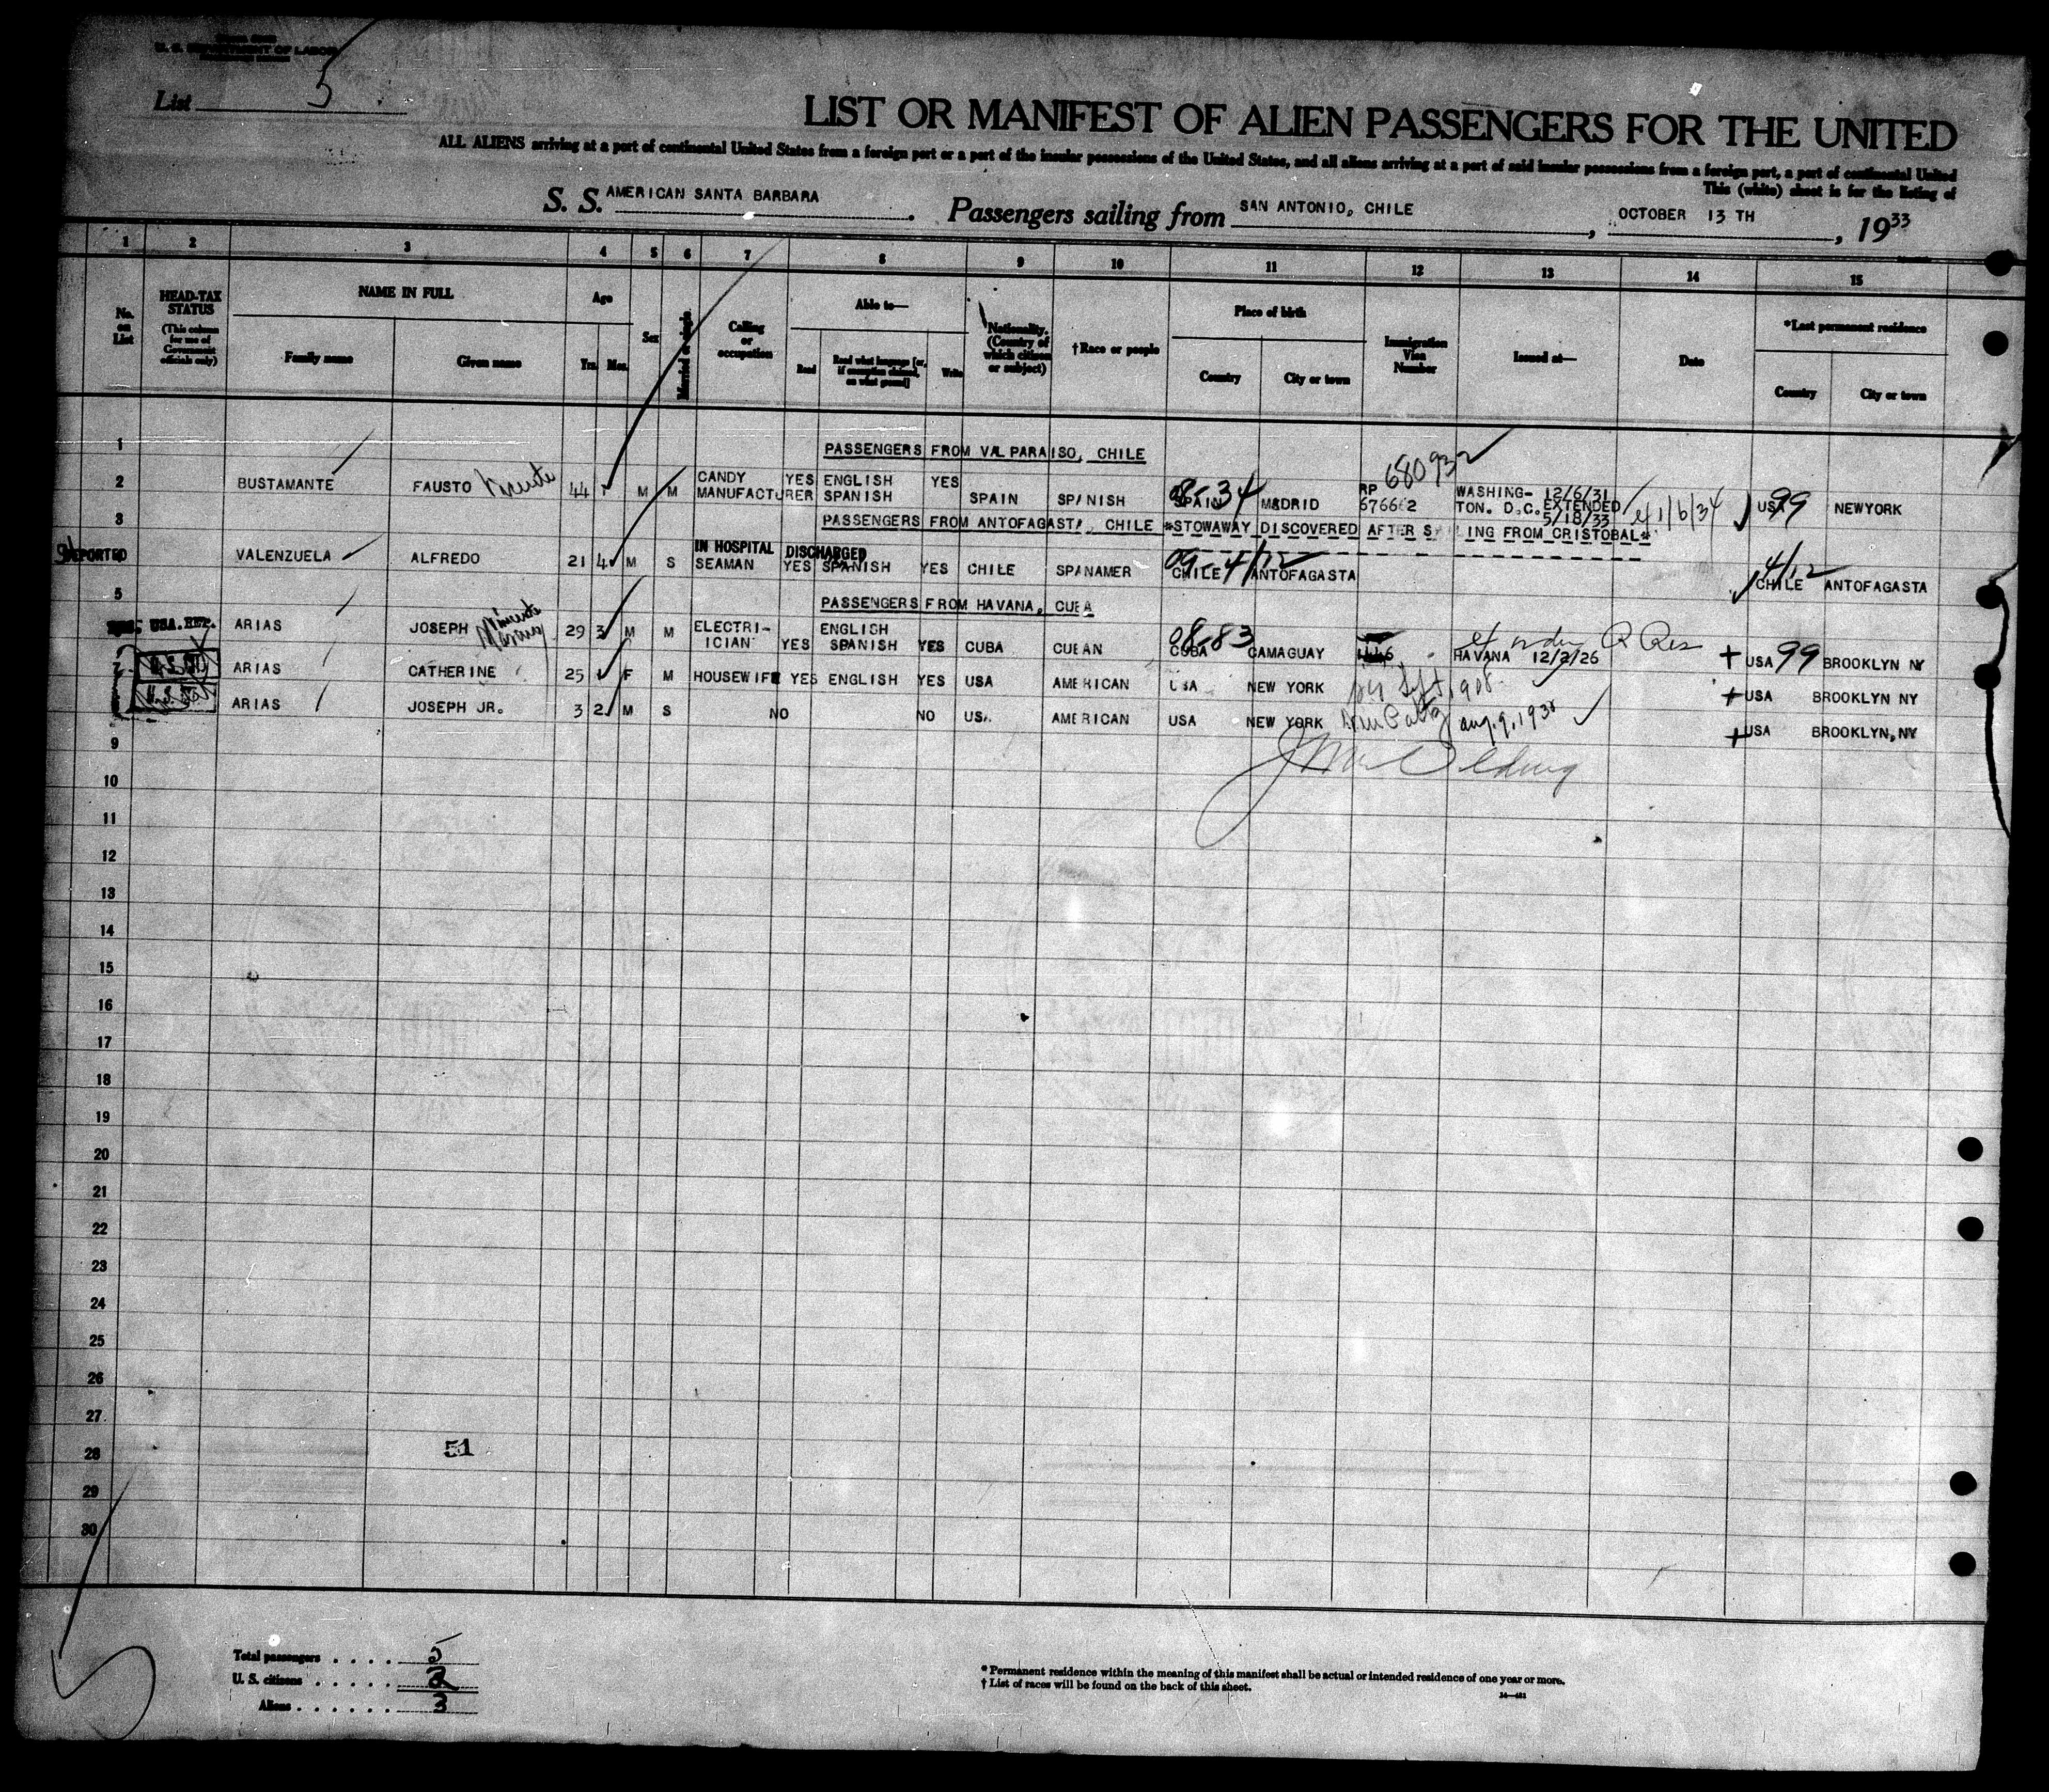 U. S. DEPARTMENT OF LABOR
List 5
LIST OR MANIFEST OF ALIEN PASSENGERS FOR THE UNITED
ALL ALIENS arriving at a port of continental United States from a foreign port or a port of the insular possessions of the United States, and all aliens arriving at a port of said insular possessions from a foreign port, a port of continental United
This (white) sheet is for the listing of
S. S. AMERICAN SANTA BARBARA . Passengers sailing from SAN ANTONIO, CHILE , OCTOBER 13 TH , 19 33
1 2 3 4 5 6 7 8 9 10 11 12 13 14 15
No. on List
HEAD-TAX STATUS (This column for use of Government officials only)
NAME IN FULL Family name Given name
Age Yrs. Mos.
Sex
Married or single
Calling or occupation
Able to— Read Read what language [or, if exemption claimed, on what ground] Write
Nationality. (Country of which citizen or subject)
†Race or people
Place of birth Country City or town
Immigration Visa Number
Issued at—
Date
*Last permanent residence Country City or town
1 PASSENGERS FROM VALPARAISO, CHILE
680932
2 BUSTAMANTE FAUSTO Vicente 44 M M CANDY MANUFACTURER YES ENGLISH SPANISH YES SPAIN SPANISH SPAIN 34 MADRID RP WASHINGTON. D.C. 12/6/31 EXTENDED 5/18/33 1/6/34 USA 99 NEWYORK
3 PASSENGERS FROM ANTOFAGASTA, CHILE *STOWAWAY DISCOVERED AFTER SAILING FROM CRISTOBAL*
DEPORTED VALENZUELA ALFREDO 21 4 M S IN HOSPITAL DISCHARGED SEAMAN YES SPANISH YES CHILE SPANAMER CHILE 4/12 ANTOFAGASTA 4/12 CHILE ANTOFAGASTA
5 PASSENGERS FROM HAVANA, CUBA
USA. REP. ARIAS JOSEPH 29 3 M M ELECTRICIAN YES ENGLISH SPANISH YES CUBA CUBAN CUBA 08-83 CAMAGUAY HAVANA 12/2/26 USA 99 BROOKLYN NY
7 ARIAS CATHERINE 25 F M HOUSEWIFE YES ENGLISH YES USA AMERICAN USA NEW YORK 1908 USA BROOKLYN NY
ARIAS JOSEPH JR. 3 2 M S NO NO USA AMERICAN USA NEW YORK Aug. 9, 1930 USA BROOKLYN, NY
9
10
11
12
13
14
15
16
17
18
19
20
21
22
23
24
25
26
27
28 51
29
30
Total passengers . . . . 5
U. S. citizens . . . . . 2
Aliens . . . . . . 3
* Permanent residence within the meaning of this manifest shall be actual or intended residence of one year or more.
† List of races will be found on the back of this sheet.